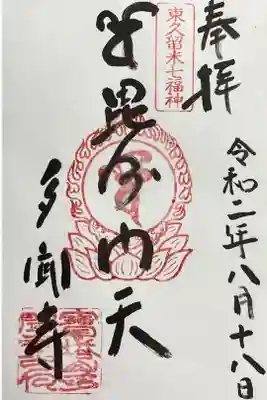 奉拝
東久留米七福神
毘沙门天
多聞寺
令和二年八月十八日